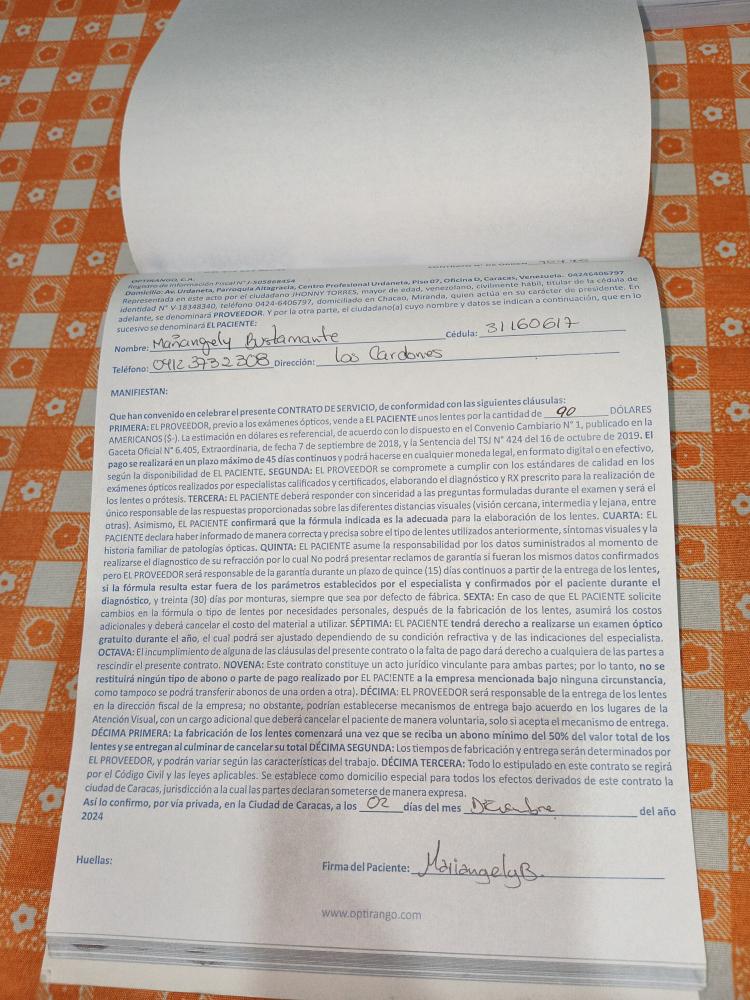 OPTIRANGO, C.A.
Registro de Información Fiscal N° J-505868454
Domicilio: Av. Urdaneta, Parroquia Altagracia, Centro Profesional Urdaneta, Piso 07, Oficina D, Caracas, Venezuela. 04246406797
Representada en este acto por el ciudadano JHONNY TORRES, mayor de edad, venezolano, civilmente hábil, titular de la cédula de
identidad N° V-18348340, teléfono 0424-6406797, domiciliado en Chacao, Miranda, quien actúa en su carácter de presidente. En
adelante, se denominará PROVEEDOR. Y por la otra parte, el ciudadano(a) cuyo nombre y datos se indican a continuación, que en lo
sucesivo se denominará EL PACIENTE:
Nombre: Mariangely Bustamante Cédula: 31160617
Teléfono: 0412 3732308 Dirección: los Cardones
MANIFIESTAN:
Que han convenido en celebrar el presente CONTRATO DE SERVICIO, de conformidad con las siguientes cláusulas:
PRIMERA: EL PROVEEDOR, previo a los exámenes ópticos, vende a EL PACIENTE unos lentes por la cantidad de 90 DÓLARES
AMERICANOS ($-). La estimación en dólares es referencial, de acuerdo con lo dispuesto en el Convenio Cambiario N° 1, publicado en la
Gaceta Oficial N° 6.405, Extraordinaria, de fecha 7 de septiembre de 2018, y la Sentencia del TSJ N° 424 del 16 de octubre de 2019. El
pago se realizará en un plazo máximo de 45 días continuos y podrá hacerse en cualquier moneda legal, en formato digital o en efectivo,
según la disponibilidad de EL PACIENTE. SEGUNDA: EL PROVEEDOR se compromete a cumplir con los estándares de calidad en los
exámenes ópticos realizados por especialistas calificados y certificados, elaborando el diagnóstico y RX prescrito para la realización de
los lentes o prótesis. TERCERA: EL PACIENTE deberá responder con sinceridad a las preguntas formuladas durante el examen y será el
único responsable de las respuestas proporcionadas sobre las diferentes distancias visuales (visión cercana, intermedia y lejana, entre
otras). Asimismo, EL PACIENTE confirmará que la fórmula indicada es la adecuada para la elaboración de los lentes. CUARTA: EL
PACIENTE declara haber informado de manera correcta y precisa sobre el tipo de lentes utilizados anteriormente, síntomas visuales y la
historia familiar de patologías ópticas. QUINTA: EL PACIENTE asume la responsabilidad por los datos suministrados al momento de
realizarse el diagnostico de su refracción por lo cual No podrá presentar reclamos de garantía si fueran los mismos datos confirmados
pero EL PROVEEDOR será responsable de la garantía durante un plazo de quince (15) días continuos a partir de la entrega de los lentes,
si la fórmula resulta estar fuera de los parámetros establecidos por el especialista y confirmados por el paciente durante el
diagnóstico, y treinta (30) días por monturas, siempre que sea por defecto de fábrica. SEXTA: En caso de que EL PACIENTE solicite
cambios en la fórmula o tipo de lentes por necesidades personales, después de la fabricación de los lentes, asumirá los costos
adicionales y deberá cancelar el costo del material a utilizar. SÉPTIMA: EL PACIENTE tendrá derecho a realizarse un examen óptico
gratuito durante el año, el cual podrá ser ajustado dependiendo de su condición refractiva y de las indicaciones del especialista.
OCTAVA: El incumplimiento de alguna de las cláusulas del presente contrato o la falta de pago dará derecho a cualquiera de las partes a
rescindir el presente contrato. NOVENA: Este contrato constituye un acto jurídico vinculante para ambas partes; por lo tanto, no se
restituirá ningún tipo de abono o parte de pago realizado por EL PACIENTE a la empresa mencionada bajo ninguna circunstancia,
como tampoco se podrá transferir abonos de una orden a otra). DÉCIMA: EL PROVEEDOR será responsable de la entrega de los lentes
en la dirección fiscal de la empresa; no obstante, podrían establecerse mecanismos de entrega bajo acuerdo en los lugares de la
Atención Visual, con un cargo adicional que deberá cancelar el paciente de manera voluntaria, solo si acepta el mecanismo de entrega.
DÉCIMA PRIMERA: La fabricación de los lentes comenzará una vez que se reciba un abono mínimo del 50% del valor total de los
lentes y se entregan al culminar de cancelar su total DÉCIMA SEGUNDA: Los tiempos de fabricación y entrega serán determinados por
EL PROVEEDOR, y podrán variar según las características del trabajo. DÉCIMA TERCERA: Todo lo estipulado en este contrato se regirá
por el Código Civil y las leyes aplicables. Se establece como domicilio especial para todos los efectos derivados de este contrato la
ciudad de Caracas, jurisdicción a la cual las partes declaran someterse de manera expresa.
Así lo confirmo, por vía privada, en la Ciudad de Caracas, a los 02 días del mes Diciembre del año
2024
Huellas:
Firma del Paciente: Mariangely B.
www.optirango.com